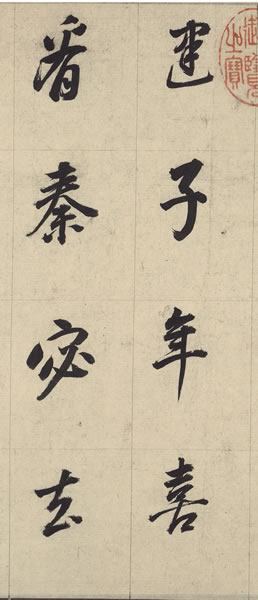 建子年喜
秦宓去